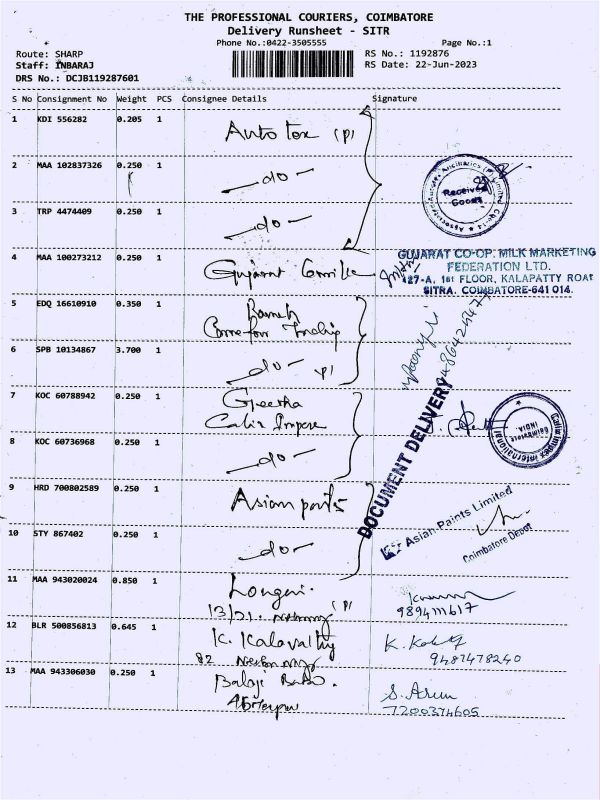 THE PROFESSIONAL COURIERS, COIMBATORE
Delivery Runsheet - SITR
Phone No.:0422-3505555 Page No.:1
Route: SHARP RS No.: 1192876
Staff: INBARAJ RS Date: 22-Jun-2023
DRS No.: DCJB119287601
S No Consignment No Weight PCS Consignee Details Signature
1 KDI 556282 0.205 1
Auto tex (P)
2 MAA 102837326 0.250 1
-do-
Received
Goods
3 TRP 4474409 0.250 1
-do-
4 MAA 100273212 0.250 1
Gujarat
GUJARAT CO-OP. MILK MARKETING
FEDERATION LTD.
427-A, 1st FLOOR, KALAPATTY ROAD
SITRA. COIMBATORE-641 014.
5 EDQ 16610910 0.350 1
6 SPB 10134867 3.700 1
-do- (P)
7 KOC 60788942 0.250 1
Geetha
DOCUMENT DELIVERY
Calix Impex International
Coimbatore
INDIA
8 KOC 60736968 0.250 1
-do-
9 HRD 700802589 0.250 1
Asian paints
Asian Paints Limited
Coimbatore Depot
10 STY 867402 0.250 1
-do-
11 MAA 943020024 0.850 1
13/21. (P)
9894111617
12 BLR 500856813 0.645 1
K. Kalavathy
82
9487478240
13 MAA 943306030 0.250 1
Balaji
S. Arun
7200374605